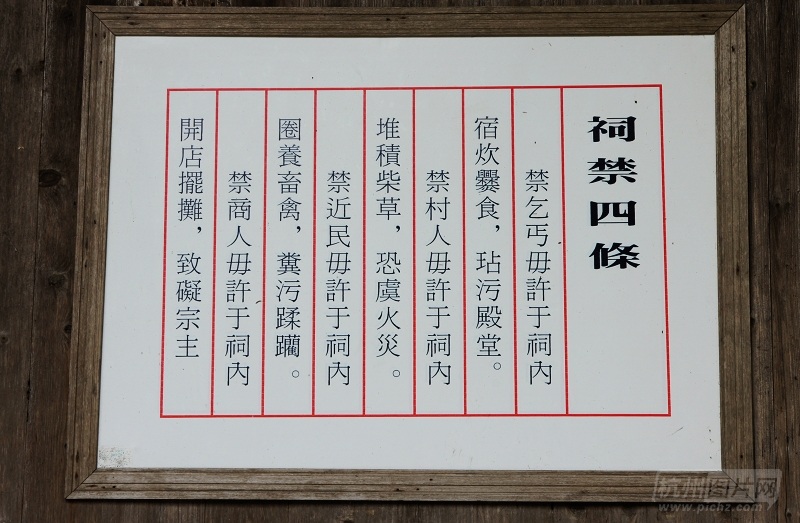 祠禁四條
禁乞丐毋許于祠內
宿炊爨食，玷污殿堂。
禁村人毋許于祠內
堆積柴草，恐虞火災。
禁近民毋許于祠內
圈養畜禽，糞污蹂躪。
禁商人毋許于祠內
開店擺攤，致礙宗主
杭州图片网
www.pichz.com